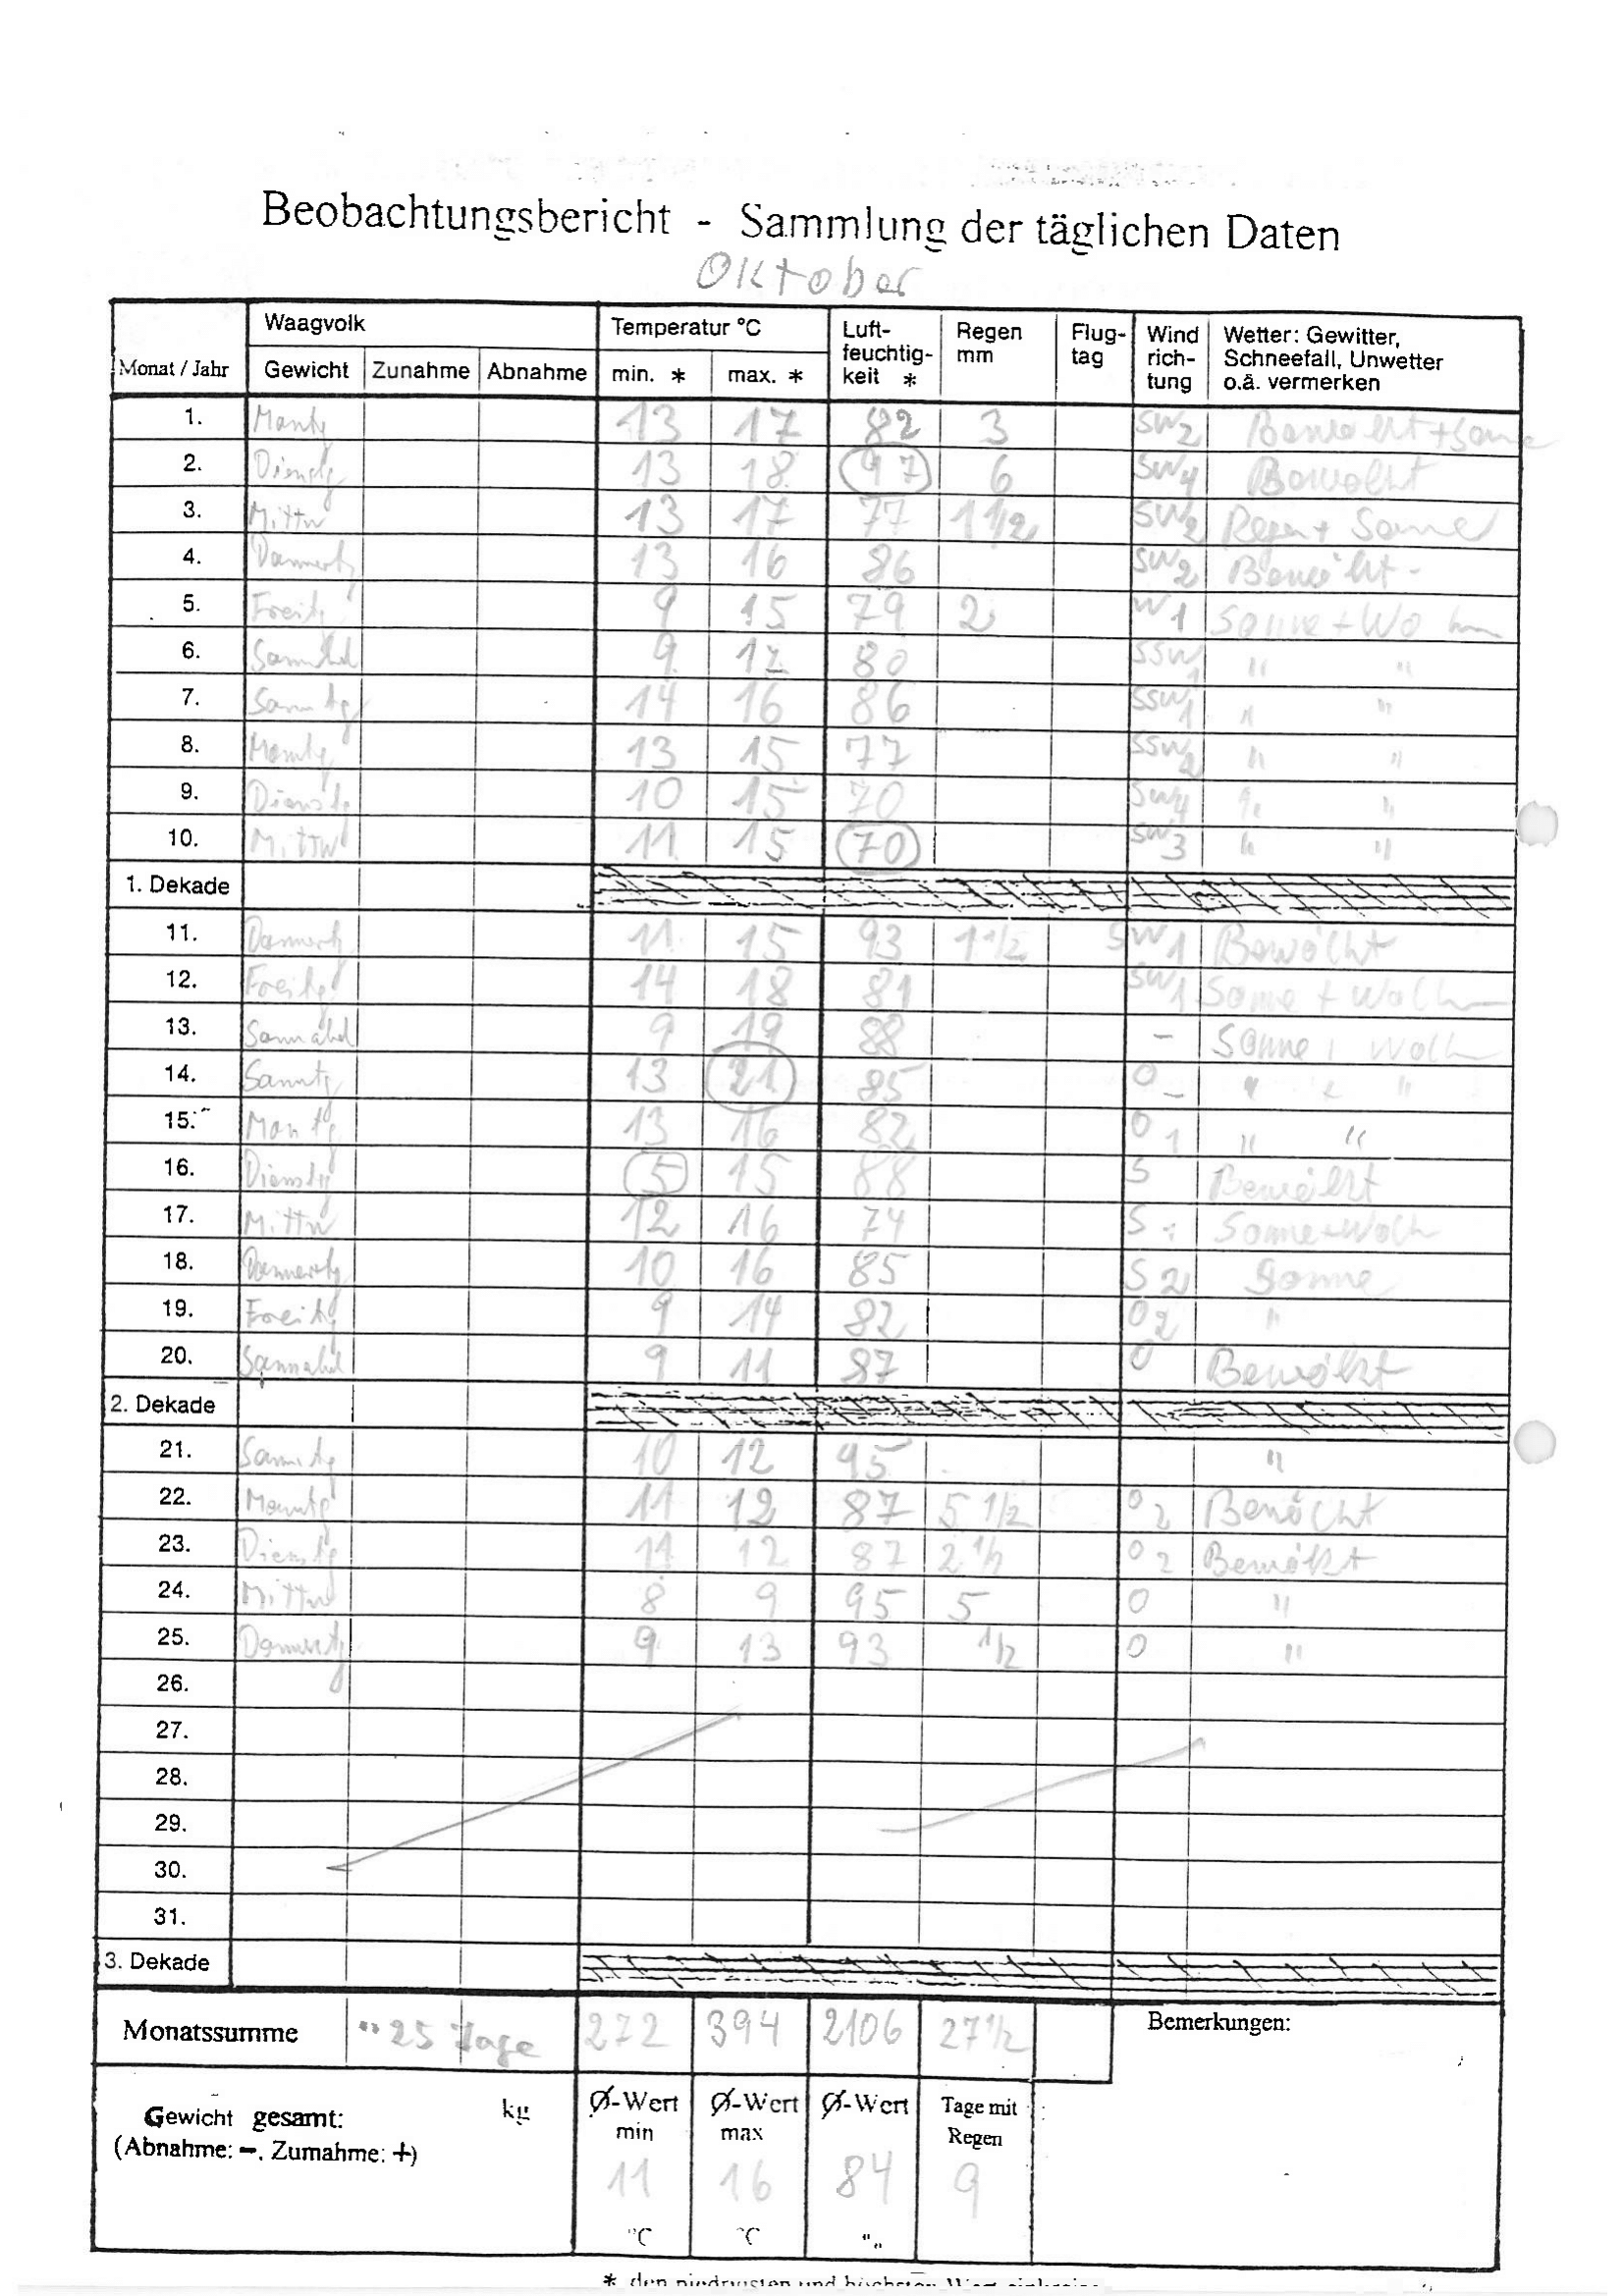 Beobachtungsbericht - Sammlung der täglichen Daten
Oktober
Monat / Jahr Waagvolk Temperatur °C Luft-feuchtig-keit * Regen mm Flug-tag Wind rich-tung Wetter: Gewitter, Schneefall, Unwetter o.ä. vermerken
Gewicht Zunahme Abnahme min. * max. *
1. Montg 13 17 82 3 SW2 Bewölkt + Sonne
2. Dienstg 13 18 97 6 SW4 Bewölkt
3. Mittw 13 17 77 1 1/2 SW2 Regen + Sonne
4. Donnerstg 13 16 86 SW2 Bewölkt -
5. Freitg 9 15 79 2 W1 Sonne + Wo
6. Sonnabd 9 12 80 SSW1 " "
7. Sonntg 14 16 86 SSW1 " "
8. Montg 13 15 77 SSW2 " "
9. Dienstg 10 15 70 SW4 " "
10. Mittw 11 15 70 SW3 " "
1. Dekade
11. Donnerstg 11 15 93 1 1/2 SW1 Bewölkt
12. Freitg 14 18 81 SW1 Sonne + Wolk
13. Sonnabd 9 19 88 - Sonne + Wolk
14. Sonntg 13 21 85 O - " "
15. Montg 13 16 82 O 1 " "
16. Dienstg 5 15 88 S Bewölkt
17. Mittw 12 16 74 S Sonne + Wolk
18. Donnerstg 10 16 85 S 2 Sonne
19. Freitg 9 14 82 O 2 "
20. Sonnabd 9 11 87 O Bewölkt
2. Dekade
21. Sonntg 10 12 95 "
22. Montg 11 12 87 5 1/2 O 2 Bewölkt
23. Dienstg 11 12 87 2 1/2 O 2 Bewölkt
24. Mittw 8 9 95 5 O "
25. Donnerstg 9 13 93 1/2 O "
26.
27.
28.
29.
30.
31.
3. Dekade
Monatssumme 25 Tage 272 394 2106 27 1/2 Bemerkungen:
Gewicht gesamt: kg Ø-Wert min Ø-Wert max Ø-Wert Tage mit Regen
(Abnahme: -. Zumahme: +)
11 16 84 9
°C °C
* den niedrigsten und höchsten Wert